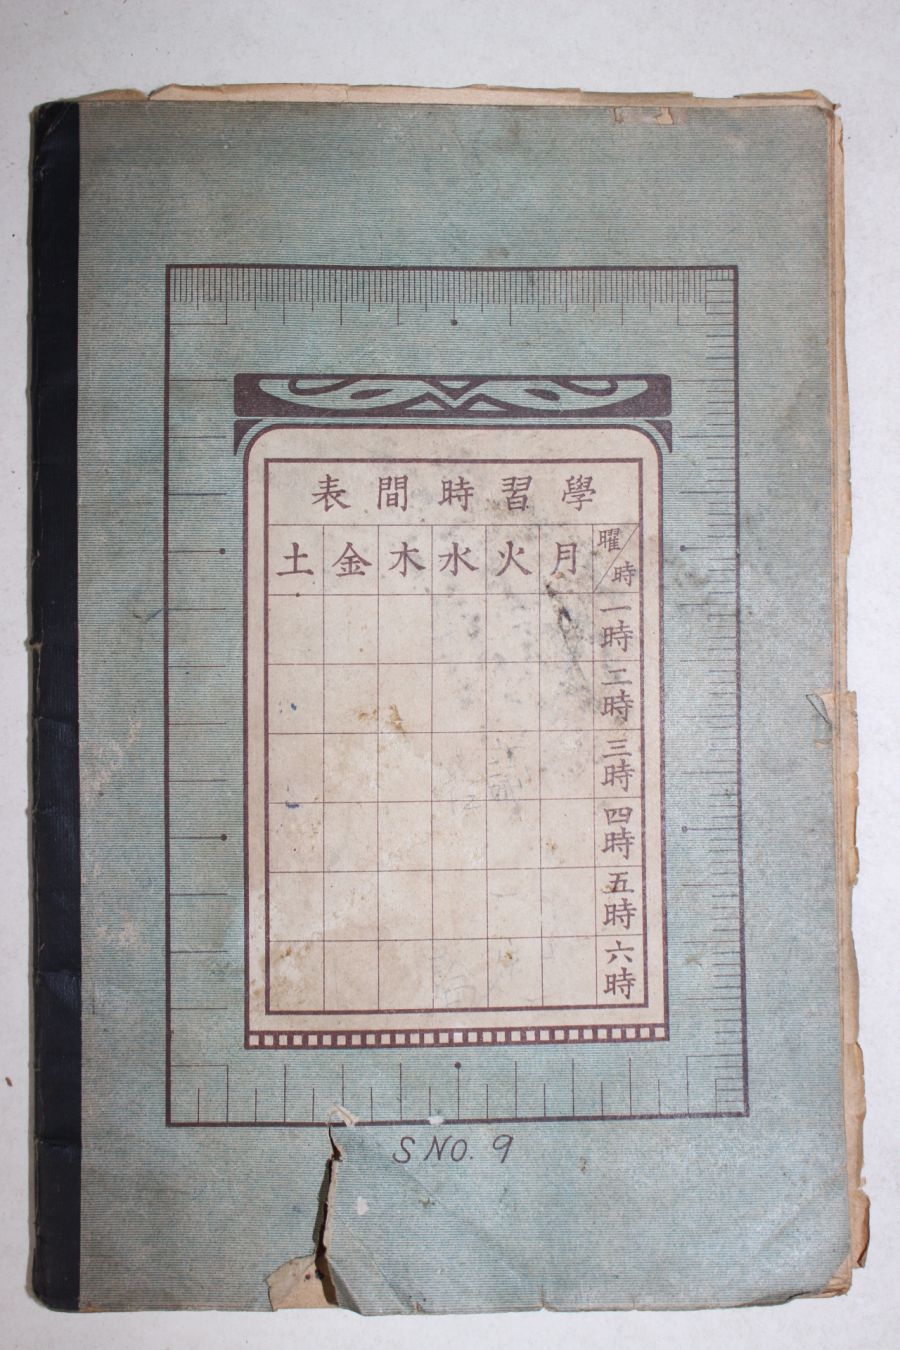 學習時間表
曜時 月 火 水 木 金 土
一時
二時
三時
四時
五時
六時
S NO. 9